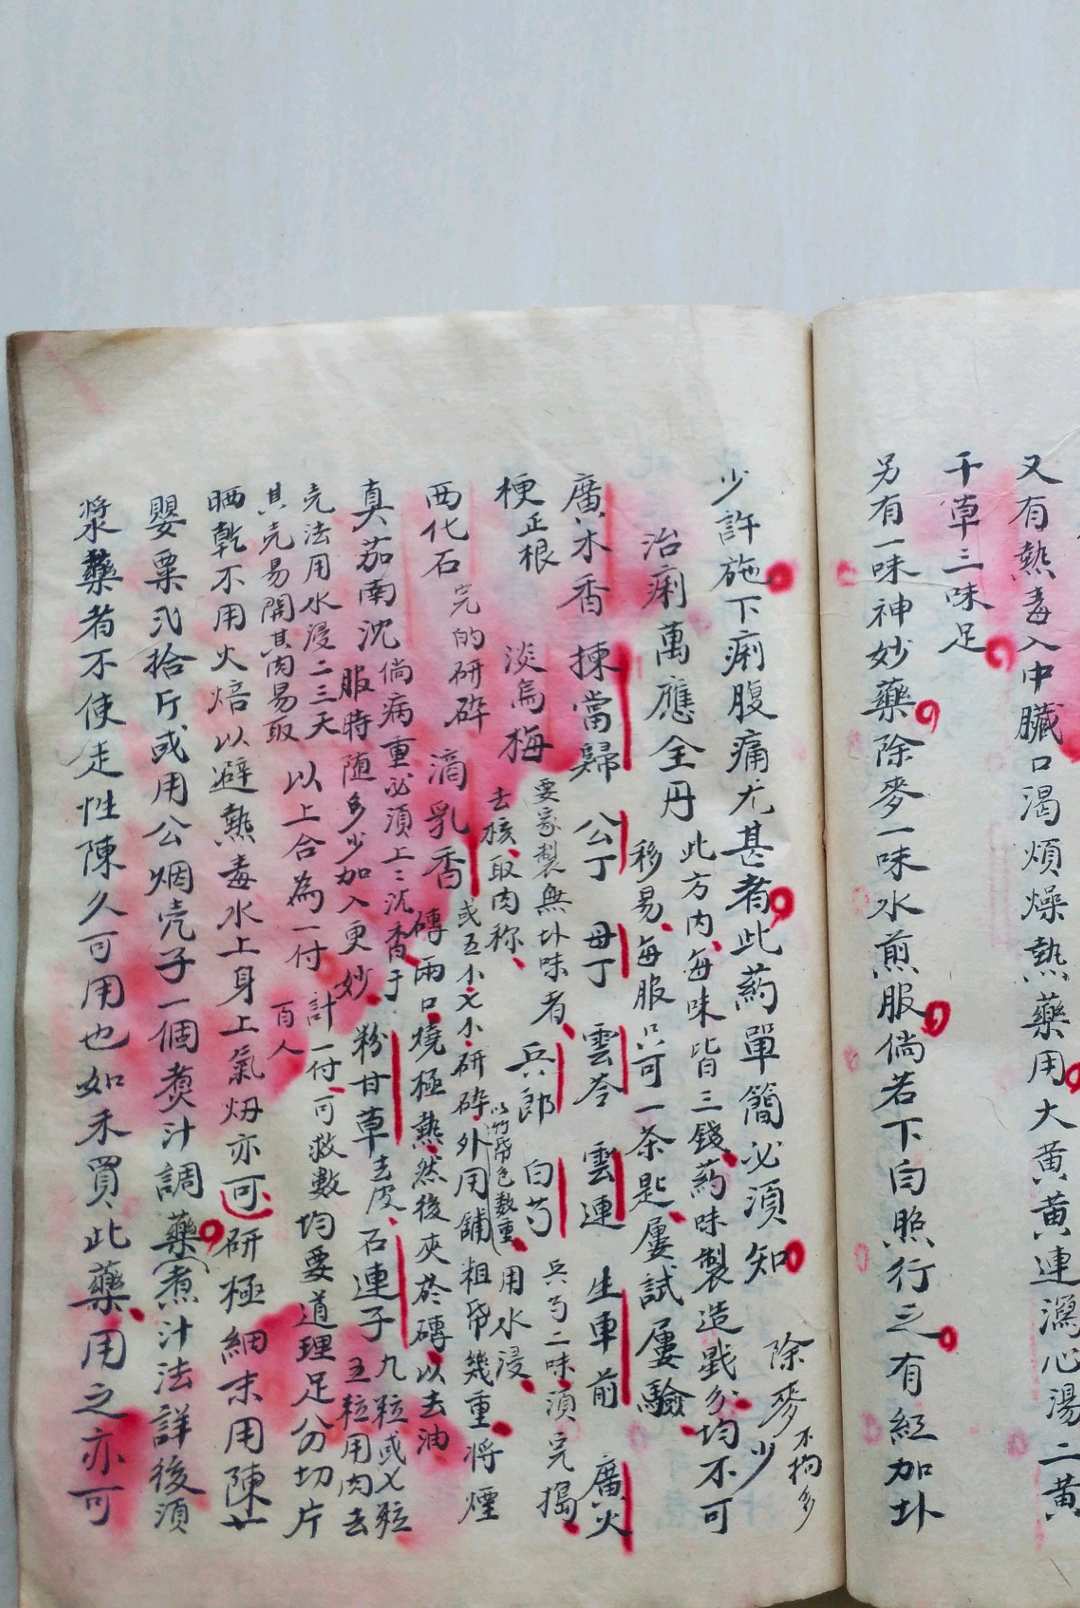 又有熱毒入中臟口渴煩燥熱藥用大黃黃連瀉心湯二黃
干草三味足
另有一味神妙藥除麥一味水煎服倘若下白照行之有紅加卦
除麥不拘多少
少許施下痢腹痛尤甚者此药單簡必須知
治痢萬應全丹
此方内每味皆三錢药味製造戥分均不可
移易每服只可一茶匙屢試屢驗
廣木香 揀當歸 公丁 母丁 雲苓 雲連 生車前 廣火
梗正根 淡烏梅
要家製無卦味者
去核取肉称
兵郎 白芍
兵芍二味須完搗
以竹帋包数重用水浸
西化石
完的研碎
滴乳香
或五小七小研碎外用舖粗帋幾重将煙
磚兩口燒極熱然後夾於磚以去油
真茄南沈
倘病重必須上上沈香于
服時随多少加入更妙
粉甘草去皮 石連子
九粒或七粒
五粒用肉去
壳法用水浸二三天
其壳易開其肉易取
以上合為一付
計一付可救數
百人
均要道理足分切片
晒乾不用火焙以避熱毒水上身上氣 亦可研極細末用陳
嬰粟弍拾斤或用公烟壳子一個煑汁調藥煮汁法詳後須
漿藥者不使走性陳久可用也如禾買此藥用之亦可